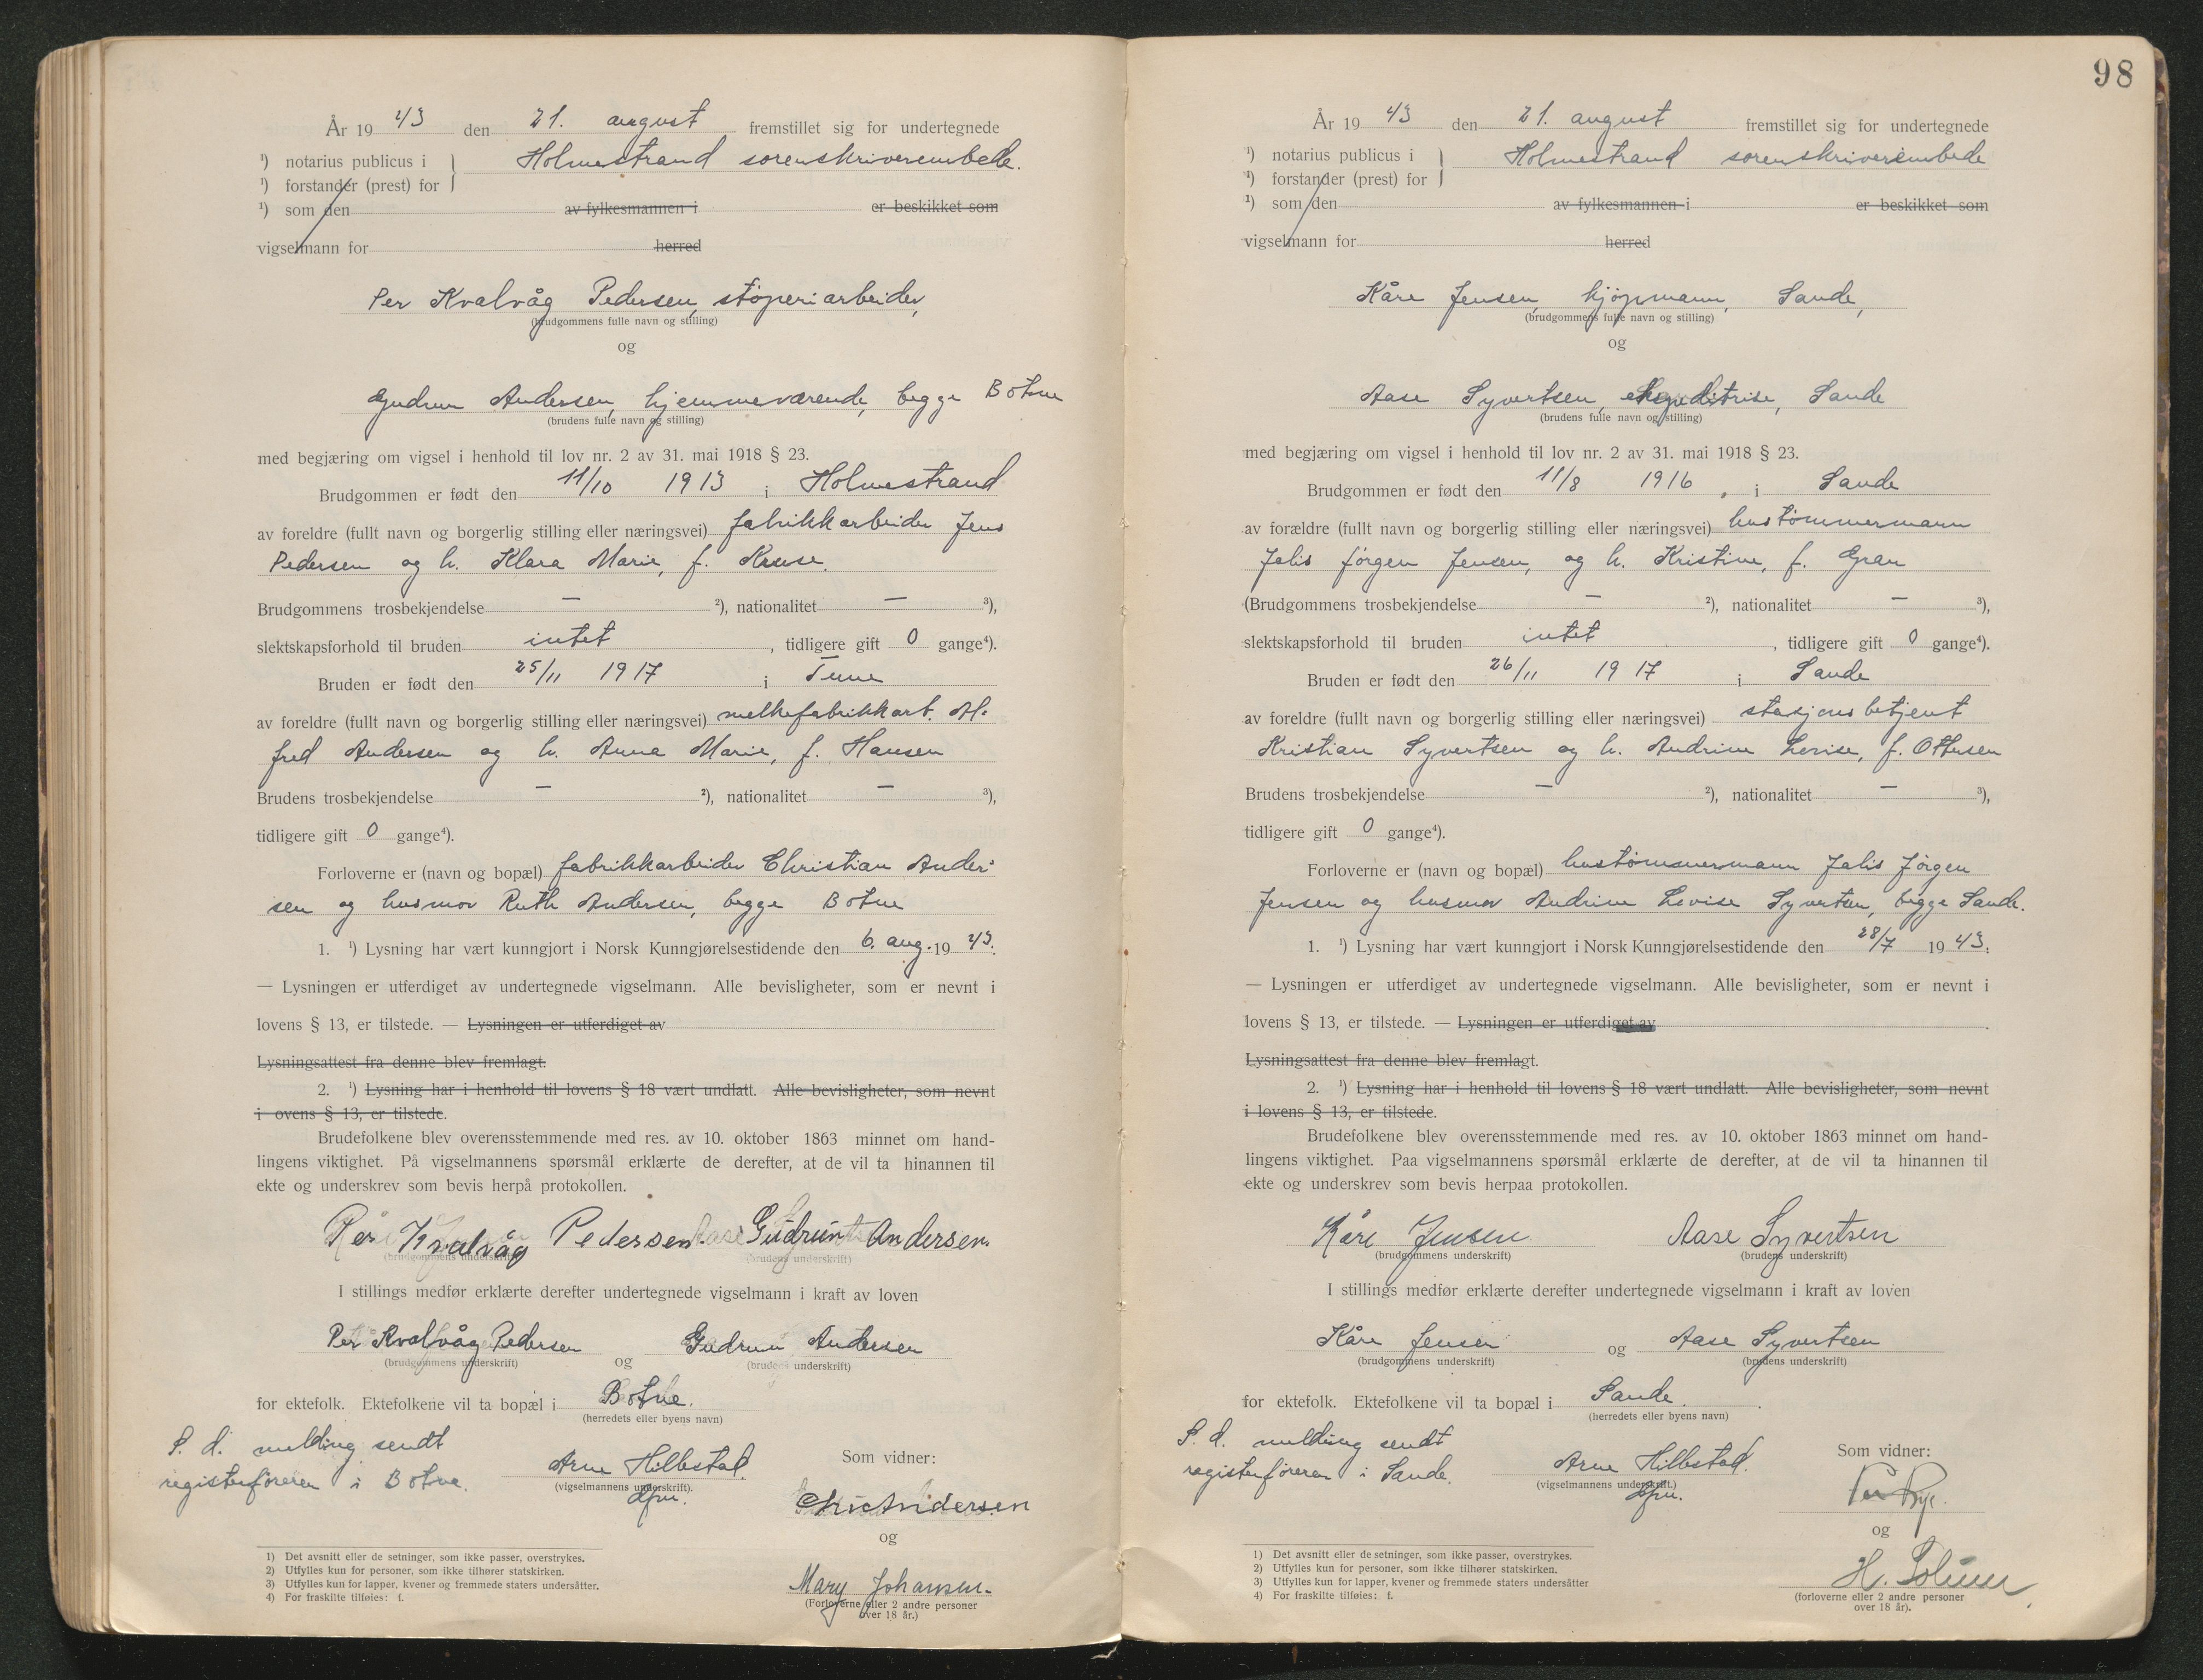 År 19 43 den 21. august fremstillet sig for undertegnede
¹) notarius publicus i } Holmestrand sorenskriverembede.
¹) forstander (prest) for
¹) som den av fylkesmannen i er beskikket som
vigselmann for herred
Per Kvalvåg Pedersen, støperiarbeider,
(brudgommens fulle navn og stilling)
og
Gudrun Andersen, hjemmeværende, begge Botne
(brudens fulle navn og stilling)
med begjæring om vigsel i henhold til lov nr. 2 av 31. mai 1918 § 23.
Brudgommen er født den 11/10 1913 i Holmestrand
av foreldre (fullt navn og borgerlig stilling eller næringsvei) fabrikkarbeider Jens
Pedersen og h. Klara Marie, f. Kruse.
Brudgommens trosbekjendelse — ²), nationalitet — ³),
slektskapsforhold til bruden intet, tidligere gift 0 gange⁴).
Bruden er født den 25/11 1917 i Tune
av foreldre (fullt navn og borgerlig stilling eller næringsvei) melkefabrikkarb. Al-
fred Andersen og h. Anna Marie, f. Hansen
Brudens trosbekjendelse — ²), nationalitet — ³),
tidligere gift 0 gange⁴).
Forloverne er (navn og bopæl) fabrikkarbeider Christian Ander-
sen og husmor Ruth Andersen, begge Botne
1. ¹) Lysning har vært kunngjort i Norsk Kunngjørelsestidende den 6. aug. 19 43.
— Lysningen er utferdiget av undertegnede vigselmann. Alle bevisligheter, som er nevnt i
lovens § 13, er tilstede. — Lysningen er utferdiget av
Lysningsattest fra denne blev fremlagt.
2. ¹) Lysning har i henhold til lovens § 18 vært undlatt. Alle bevisligheter, som nevnt
i ovens § 13, er tilstede.
Brudefolkene blev overensstemmende med res. av 10. oktober 1863 minnet om hand-
lingens viktighet. På vigselmannens spørsmål erklærte de derefter, at de vil ta hinannen til
ekte og underskrev som bevis herpå protokollen.
Per Kvalvåg Pedersen. Gudrun Andersen.
(brudgommens underskrift) (brudens underskrift)
I stillings medfør erklærte derefter undertegnede vigselmann i kraft av loven
Per Kvalvåg Pedersen og Gudrun Andersen
(brudgommens underskrift) (brudens underskrift)
for ektefolk. Ektefolkene vil ta bopæl i Botne.
(herredets eller byens navn)
S. d. melding sendt
registerføreren i Botne.
Arne Hillestad.
(vigselmannens underskrift).
Som vidner:
Chr. Andersen
og
Mary Johansen.
(Forloverne eller 2 andre personer
over 18 år.)
1) Det avsnitt eller de setninger, som ikke passer, overstrykes.
2) Utfylles kun for personer, som ikke tilhører statskirken.
3) Utfylles kun for lapper, kvener og fremmede staters undersåtter.
4) For fraskilte tilføies: f.
98
År 19 43 den 21. august fremstillet sig for undertegnede
¹) notarius publicus i } Holmestrand sorenskriverembede
¹) forstander (prest) for
¹) som den av fylkesmannen i er beskikket som
vigselmann for herred
Kåre Jensen, kjøpmann, Sande,
(brudgommens fulle navn og stilling)
og
Aase Syvertsen, ekspeditrise, Sande
(brudens fulle navn og stilling)
med begjæring om vigsel i henhold til lov nr. 2 av 31. mai 1918 § 23.
Brudgommen er født den 11/8 1916, i Sande
av forældre (fullt navn og borgerlig stilling eller næringsvei) hustømmermann
Jalis Jørgen Jensen, og h. Kristine, f. Gran
(Brudgommens trosbekjendelse — ²), nationalitet — ³),
slektskapsforhold til bruden intet, tidligere gift 0 gange⁴).
Bruden er født den 26/11 1917 i Sande
av foreldre (fullt navn og borgerlig stilling eller næringsvei) stasjonsbetjent
Kristian Syvertsen og h. Andrine Lovise, f. Ottersen
Brudens trosbekjendelse — ²), nationalitet — ³),
tidligere gift 0 gange⁴).
Forloverne er (navn og bopæl) hustømmermann Jalis Jørgen
Jensen og husmor Andrine Lovise Syvertsen, begge Sande.
1. ¹) Lysning har vært kunngjort i Norsk Kunngjørelsestidende den 28/7 19 43.
— Lysningen er utferdiget av undertegnede vigselmann. Alle bevisligheter, som er nevnt i
lovens § 13, er tilstede. — Lysningen er utferdiget av
Lysningsattest fra denne blev fremlagt.
2. ¹) Lysning har i henhold til lovens § 18 vært undlatt. Alle bevisligheter, som nevnt
i lovens § 13, er tilstede.
Brudefolkene blev overensstemmende med res. av 10. oktober 1863 minnet om hand-
lingens viktighet. Paa vigselmannens spørsmål erklærte de derefter, at de vil ta hinannen til
ekte og underskrev som bevis herpaa protokollen.
Kåre Jensen Aase Syvertsen
(brudgommens underskrift) (brudens underskrift)
I stillings medfør erklærte derefter undertegnede vigselmann i kraft av loven
Kåre Jensen og Aase Syvertsen
(brudgommens underskrift) (brudens underskrift)
for ektefolk. Ektefolkene vil ta bopæl i Sande.
(herredets eller byens navn)
S. d. melding sendt
registerføreren i Sande.
Arne Hillestad.
(vigselmannens underskrift.)
Som vidner:
Per Rye.
og
H. Solum
(forloverne eller 2 andre personer
over 18 år).
1) Det avsnitt eller de setninger, som ikke passer, overstrykes.
2) Utfylles kun for personer, som ikke tilhører statskirken.
3) Utfylles kun for lapper, kvener og fremmede staters undersåtter
4) For fraskilte tilføies: f.